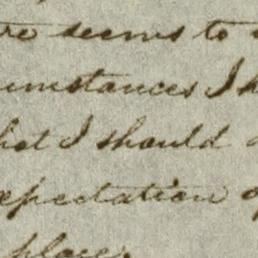 re seems to
umstances I h
hat I should
expectation o
place